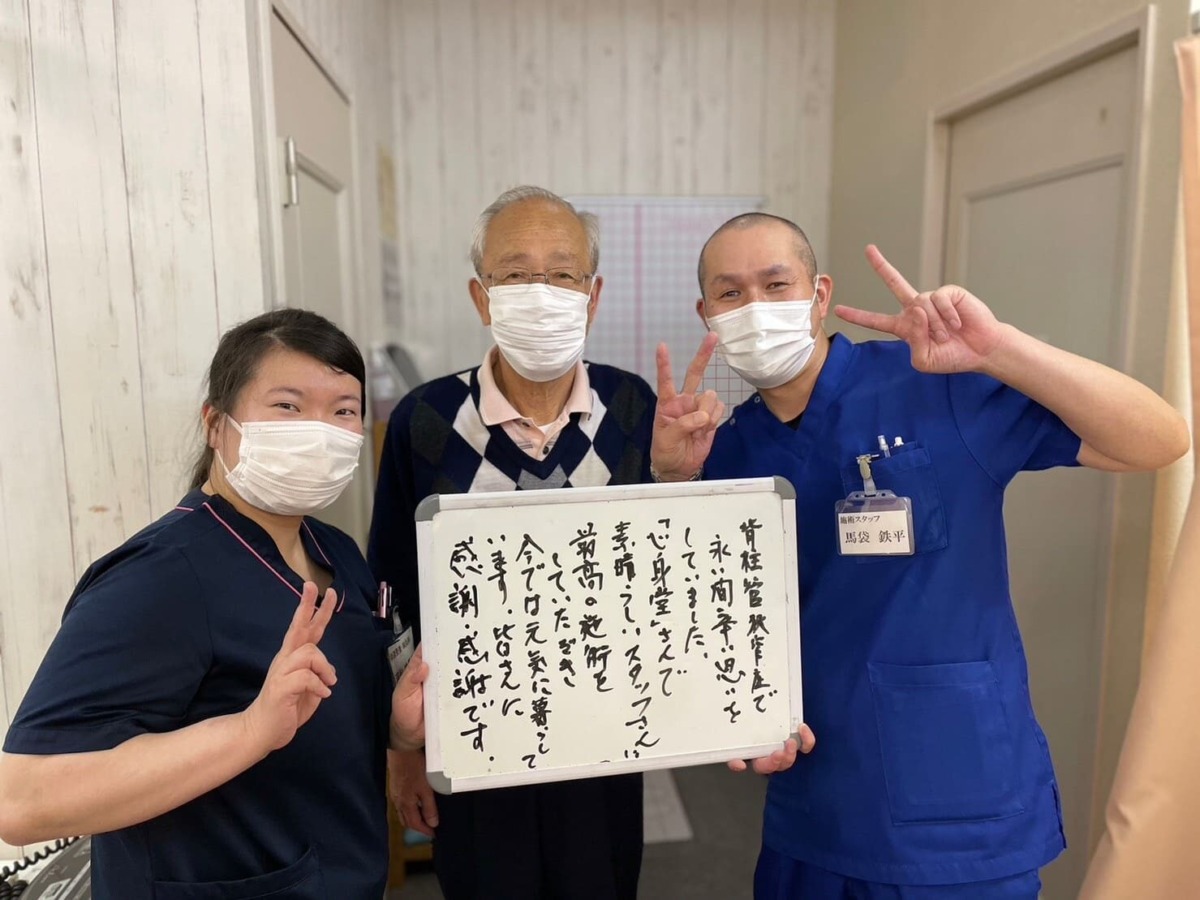 脊柱管狭窄症で
永い間辛い思いを
していました、
「心身堂」さんで
素晴らしいスタッフさんに
最高の施術を
していただき
今では元気に暮らして
います．皆さんに
感謝・感謝です．
施術スタッフ
馬袋 鉄平